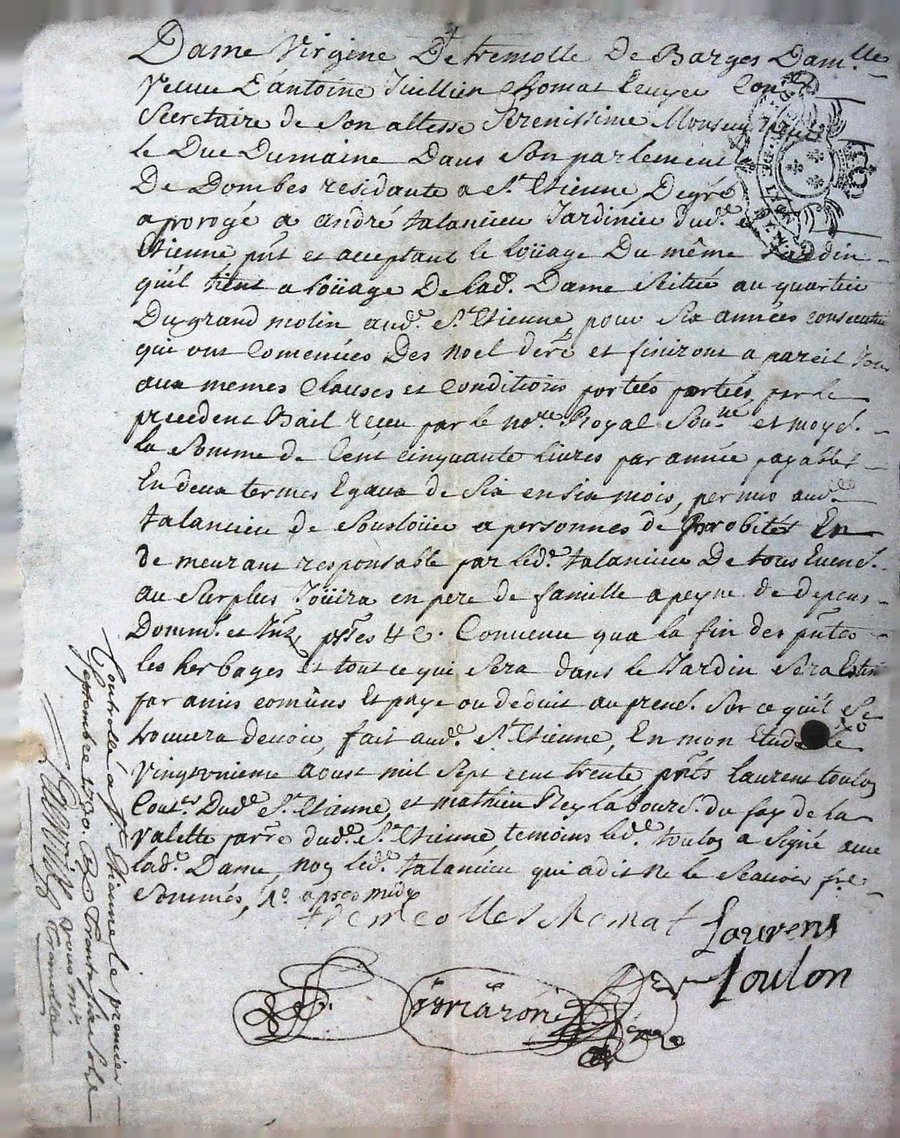 Dame Virgine De tremolle De Barges Dam.lle
Veuve D'antoine Jullien Chomat Ecuyer Con.
Secretaire de Son altesse Serenissime Monseig
le Duc Dumaine Dans Son parlement
De Dombes residante a St. Etienne, Degré
a prorogé a andré talancieu Jardinie dud.
Etienne pnt et acceptant le loüage Du même Jardin
qu'il tient a loüage De lad. Dame Scitué au quartie
Du grand molin aud. St. Etienne, pour Six années consecutiv
qui ont Comencées Des noel der.e et finiront a pareil Jour
aux memes Clauses et Conditions portées portées par le
precedent Bail receu par le no.re Royal Sou.né et moy.
la Somme de Cent cinquante livres par année payables
En deux termes Egaux de Six en Six mois, permis aud.
talancieu de Souslouer a personnes de Probités En
demeurant responsable par led. talancieu De tous Evene.
au Surplus Joüira en pere de famille a peyne de depens
Domm. et Int. pses &c. Convenu qu'a la fin des pntes
les herbages et tout ce qui Sera dans le Jardin Sera Estim
par amis comûns Et payé ou deduit au pren. Sur ce qu'il Se
trouvera devoir, fait aud. St. Etienne, En mon Etude le
Vingtunieme aoust mil Sept cent trente pnts Laurent toulon
Cout.r Dud. St. Etienne, et mathieu Rey labour. du fay de la
Valette parr.e dud. St. Etienne temoins led. toulon a Signé avec
lad. Dame, non led. talancieu qui a dit ne le Scavoir
Sommés, apres midy
tremeolles Chomat Laurens
Toulon
Controllé a St. Etienne le premier
Septembre 1730. Rçu